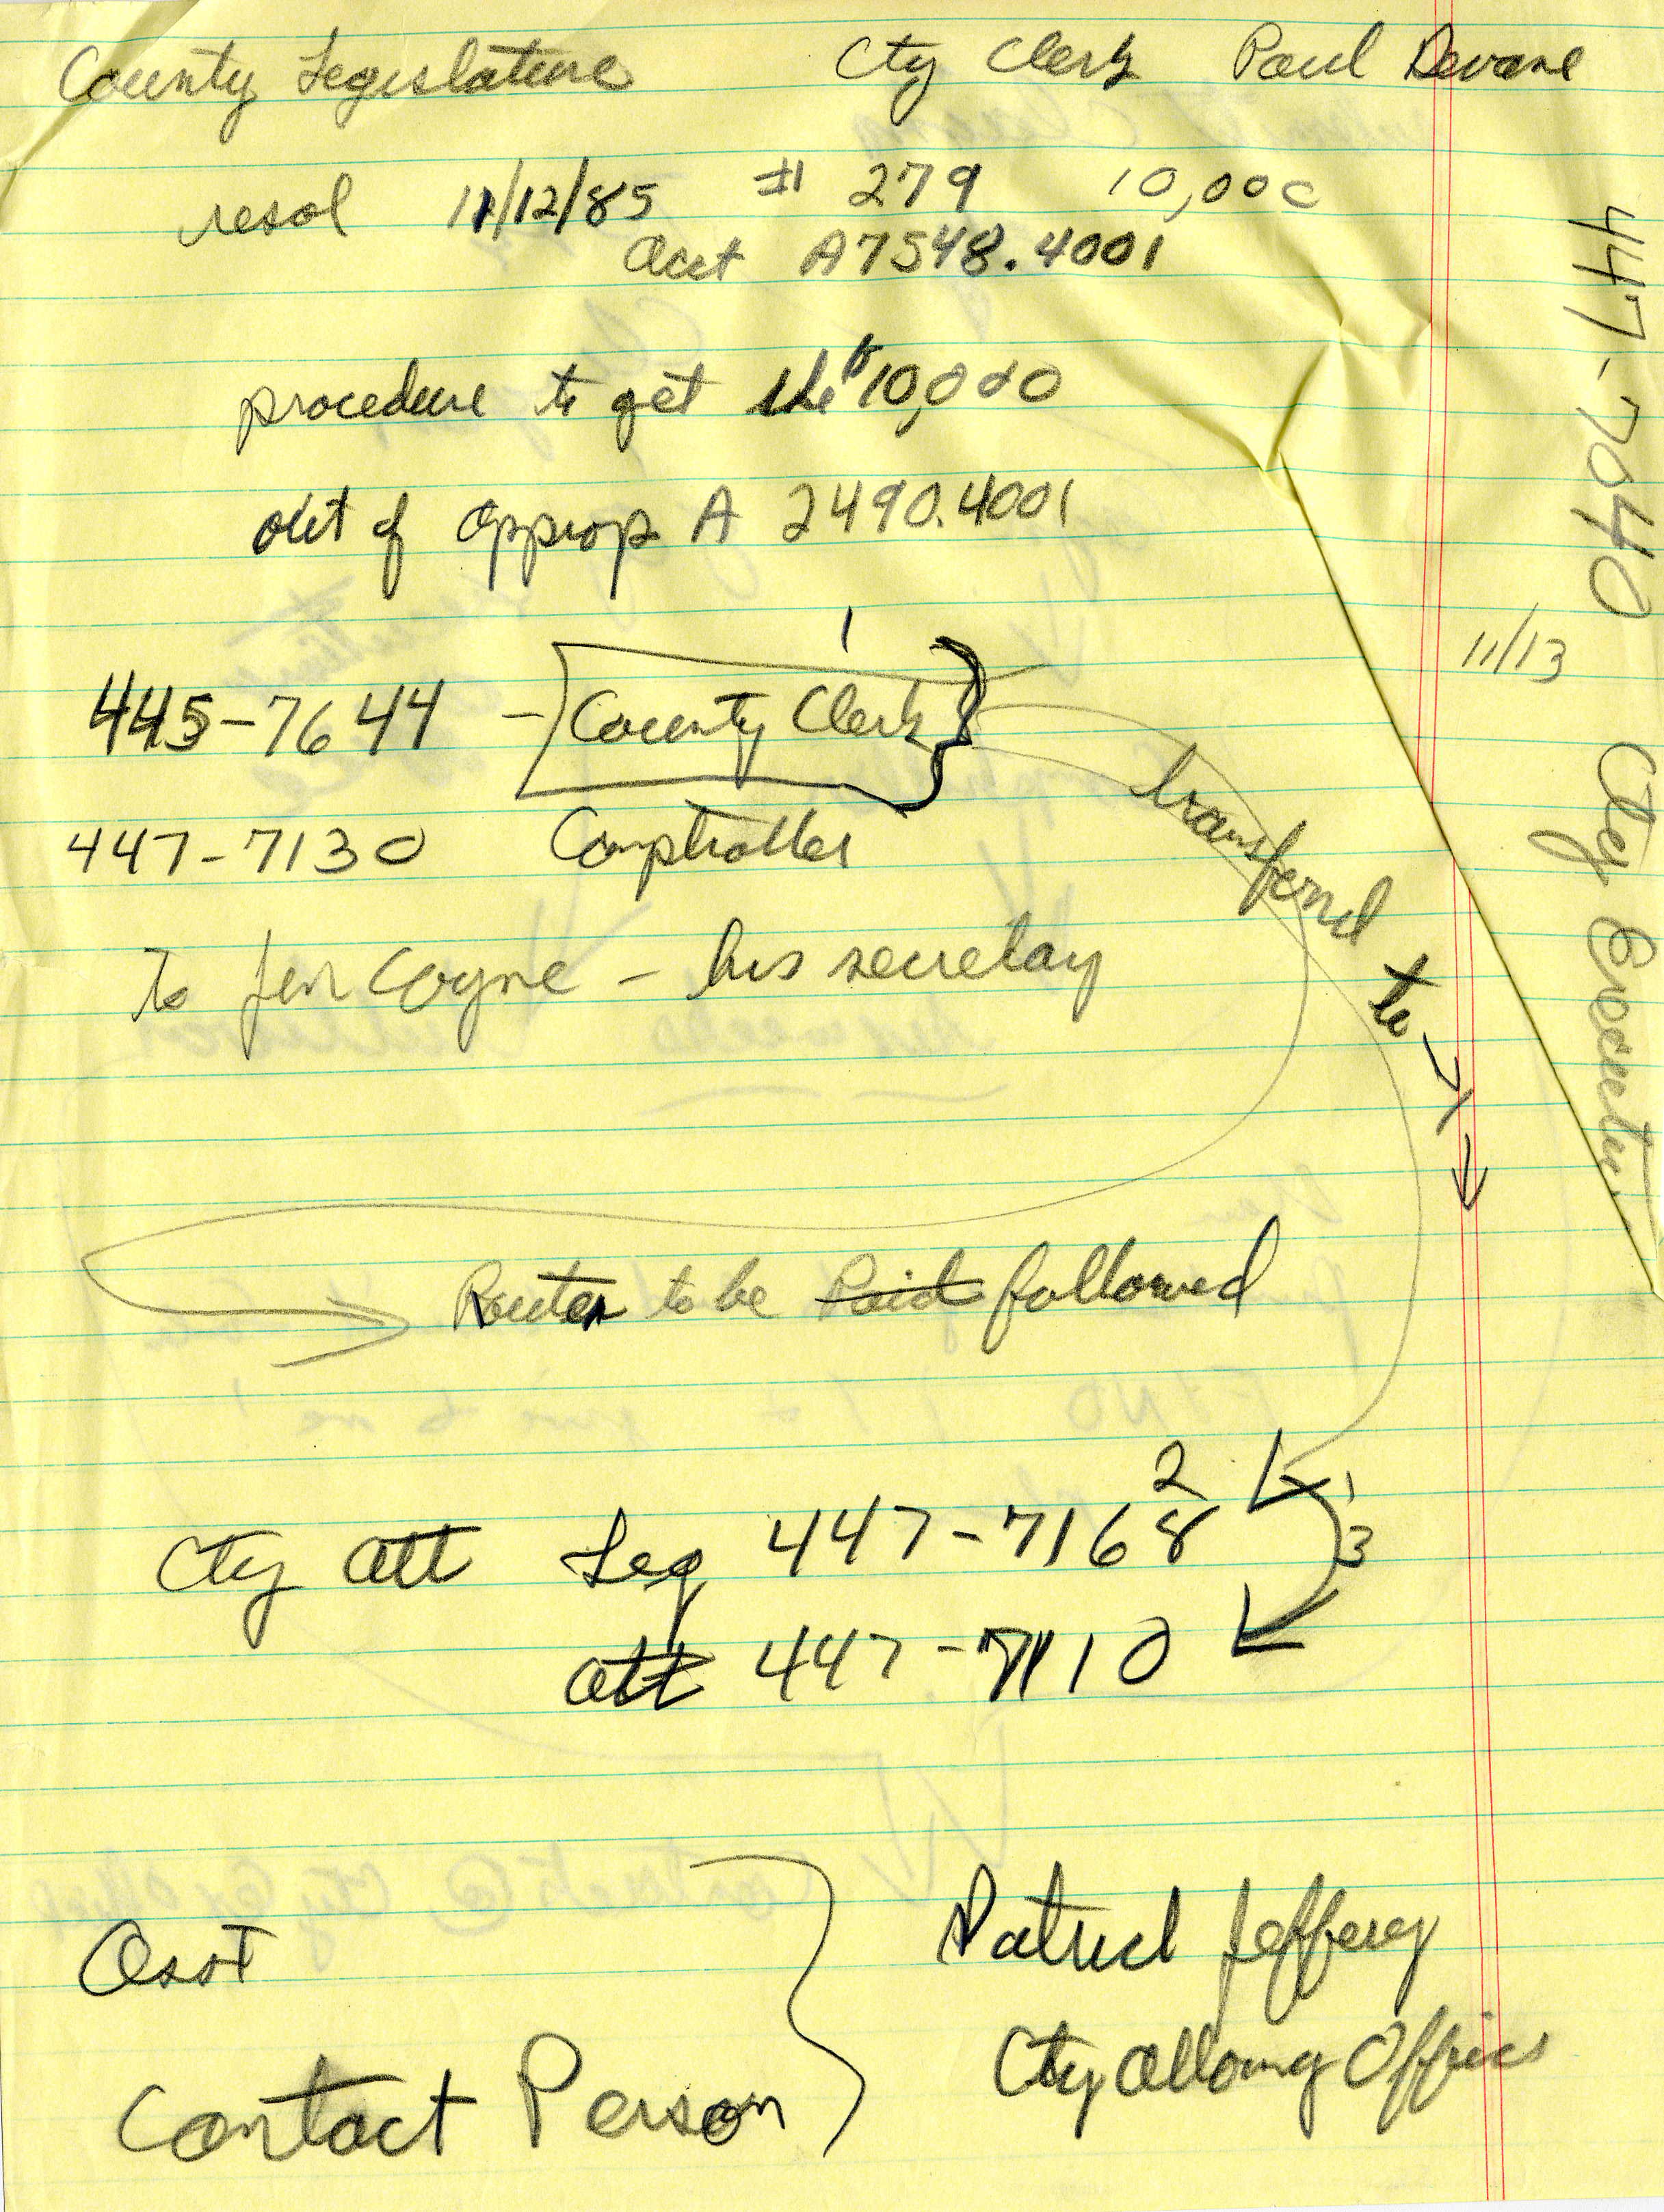 County Legislature Cty Clerk Paul Devane
resol 11/12/85 # 279 10,000
acct A7548.4001
procedure to get the $10,000
out of approp A 2490.4001
1
445-7644 - County Clerk
447-7130 Comptroller
to Jim Coyne - his secretay
transferred to
447-7040 Cty Executive
11/13
Route to be Paid followed
2
Cty Att Leg 447-7168
1
3
Att 447-7110
Asst
Contact Person
Patrick Jeffery
Cty Attorney Offices